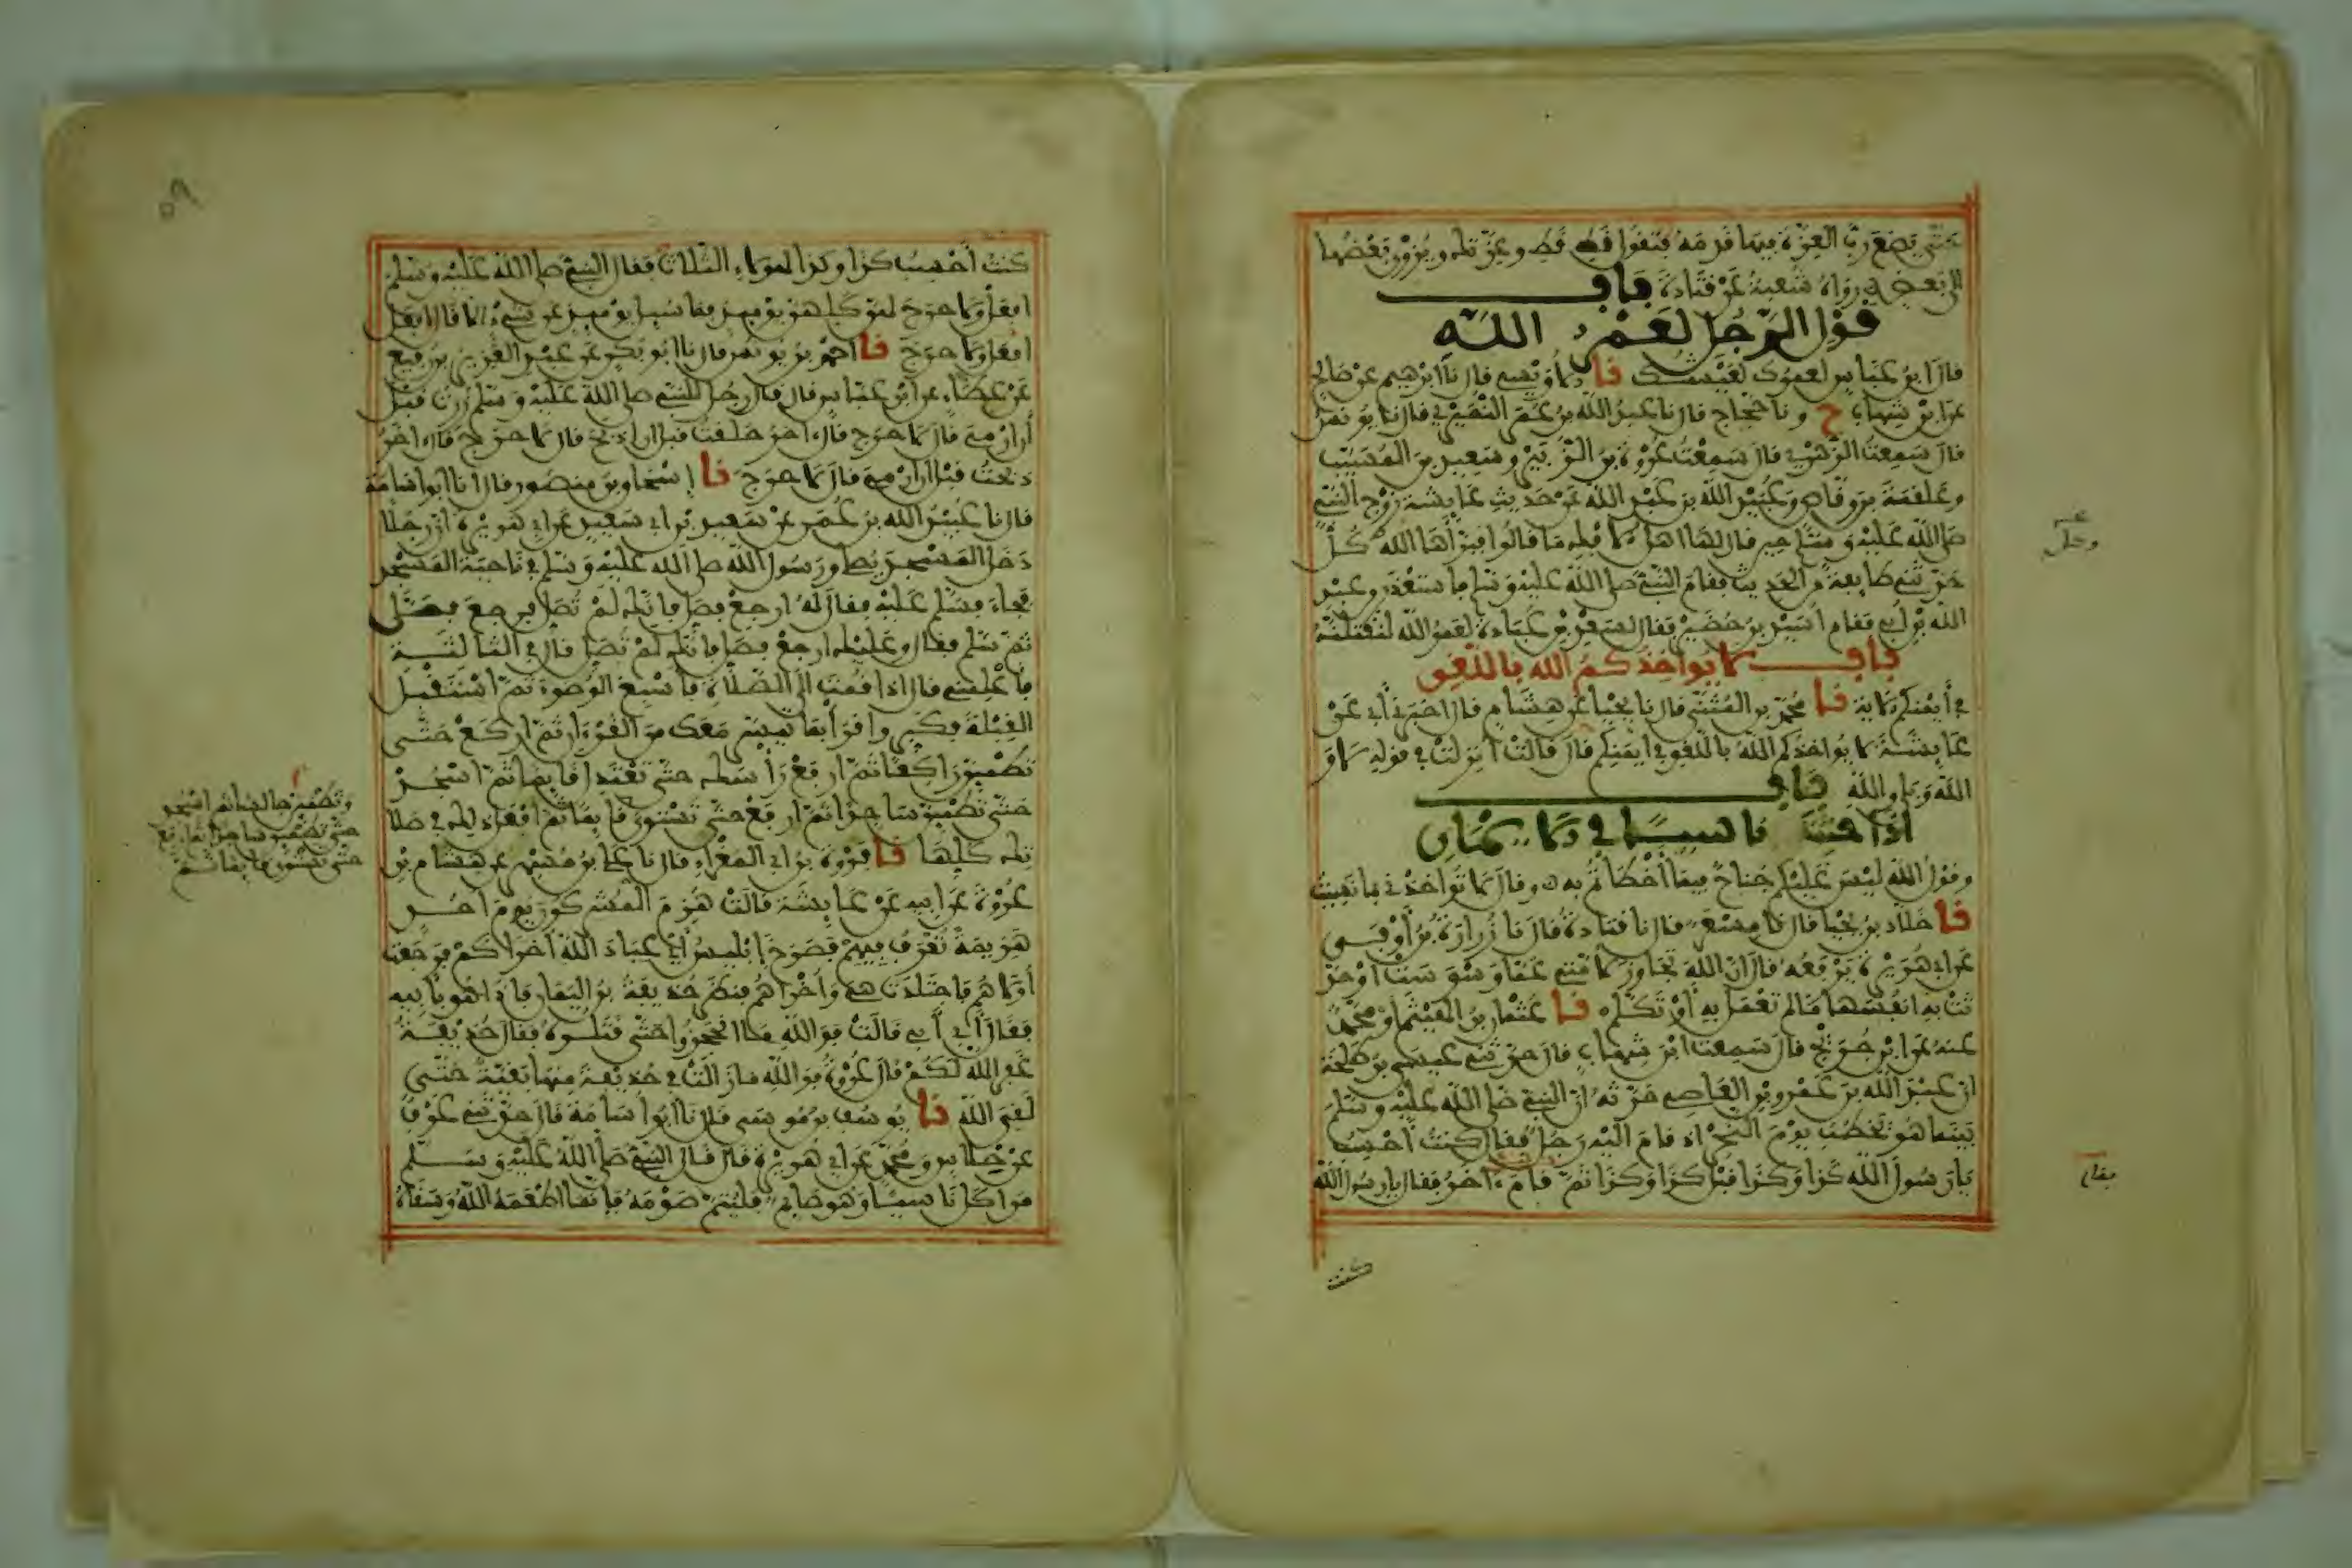 حتى يضع رب العزة فيها قدمه فتقول قط قط وعزتك ويزوى بعضها
إلى بعض رواه شعبة عن قتادة باب
قول الرجل لعمر الله
قال ابن عباس لعمرك لعيشك نا الأويسي قال نا إبرهيم عن صالح
عن ابن شهاب ح ونا حجاج قال نا عبد الله بن عمر النميري قال نا يونس
قال سمعت الزهري قال سمعت عروة بن الزبير وسعيد بن المسيب
وعلقمة بن وقاص وعبيد الله بن عبد الله عن حديث عايشة زوج النبي
صلى الله عليه وسلم حين قال لها أهل الإفك ما قالوا فبرأها الله كل
حدثني طايفة من الحديث فقام النبي صلى الله عليه وسلم فاستعذر من عبد
الله بن أبي فقام أسيد بن حضير فقال لسعد بن عبادة لعمر الله لنقتلنه
باب لا يواخذكم الله باللغو
في أيمنكم الآية نا محمد بن المثنى قال نا يحيا عن هشام قال أخبرني أبي عن
عايشة لا يواخذكم الله باللغو في أيمنكم قال قالت أنزلت في قوله لا و
الله وبلى والله باب
إذا حنث ناسيا في الأيمان
وقول الله ليس عليكم جناح فيما أخطأتم به وقال لا تواخذني بما نسيت
نا خلاد بن يحيا قال نا مسعر قال نا قتادة قال نا زرارة بن أوفى
عن أبي هريرة يرفعه قال إن الله تجاوز لأمتي عما وسوست أو حد
ثت به أنفسها ما لم تعمل به أو تكلم نا عثمان بن الهيثم أو محمد
عنه عن ابن جريج قال سمعت ابن شهاب قال حدثني عيسى بن طلحة
أن عبد الله بن عمرو بن العاصي حدثه أن النبي صلى الله عليه وسلم
بينما هو يخطب يوم النحر إذ قام إليه رجل فقال كنت أحسب
يا رسول الله كذا وكذا قبل كذا وكذا ثم قام آخر فقال يا رسول الله
كنت
فقال
كنت أحسب كذا وكذا لهولاء الثلاث فقال النبي صلى الله عليه وسلم
افعل ولا حرج لهن كلهن يوميذ فما سيل يوميذ عن شيء إلا قال افعل
افعل ولا حرج نا أحمد بن يونس قال نا أبو بكر عن عبد العزيز بن رفيع
عن عطاء عن ابن عباس قال قال رجل للنبي صلى الله عليه وسلم زرت قبل
أن أرمي قال لا حرج قال آخر حلقت قبل أن أذبح قال لا حرج قال آخر
ذبحت قبل أن أرمي قال لا حرج نا إسحاق بن منصور قال نا أبو أسامة
قال نا عبيد الله بن عمر عن سعيد بن أبي سعيد عن أبي هريرة أن رجلا
دخل المسجد يصلي ورسول الله صلى الله عليه وسلم في ناحية المسجد
فجاء فسلم عليه فقال له ارجع فصل فإنك لم تصل فرجع فصلى
ثم سلم فقال وعليك ارجع فصل فإنك لم تصل قال في الثالثة
فأعلمني قال إذا قمت إلى الصلاة فأسبغ الوضوء ثم استقبل
القبلة فكبر واقرأ بما تيسر معك من القرءان ثم اركع حتى
تطمين راكعا ثم ارفع رأسك حتى تعتدل قايما ثم اسجد
حتى تطمين ساجدا ثم ارفع حتى تستوي قايما ثم افعل ذلك في صلا
تك كلها نا فروة بن أبي المغراء قال نا علي بن مسهر عن هشام بن
عروة عن أبيه عن عايشة قالت هزم المشركون يوم أحد
هزيمة تعرف فيهم فصرخ إبليس أي عباد الله أخراكم فرجعت
أولاهم فاجتلدت هي وأخراهم فنظر حذيفة بن اليمان فإذا هو بأبيه
فقال أبي أبي قالت فوالله ما انحجزوا حتى قتلوه فقال حذيفة
غفر الله لكم قال عروة فوالله ما زالت في حذيفة منها بقية حتى
لقي الله نا يوسف بن موسى قال نا أبو أسامة قال حدثني عوف
عن خلاس ومحمد عن أبي هريرة قال قال النبي صلى الله عليه وسلم
من أكل ناسيا وهو صايم فليتم صومه فإنما أطعمه الله وسقاه
وتطمين جالسا ثم اسجد
حتى تطمين ساجدا ثم ارفع
حتى تستوي قايما ثم